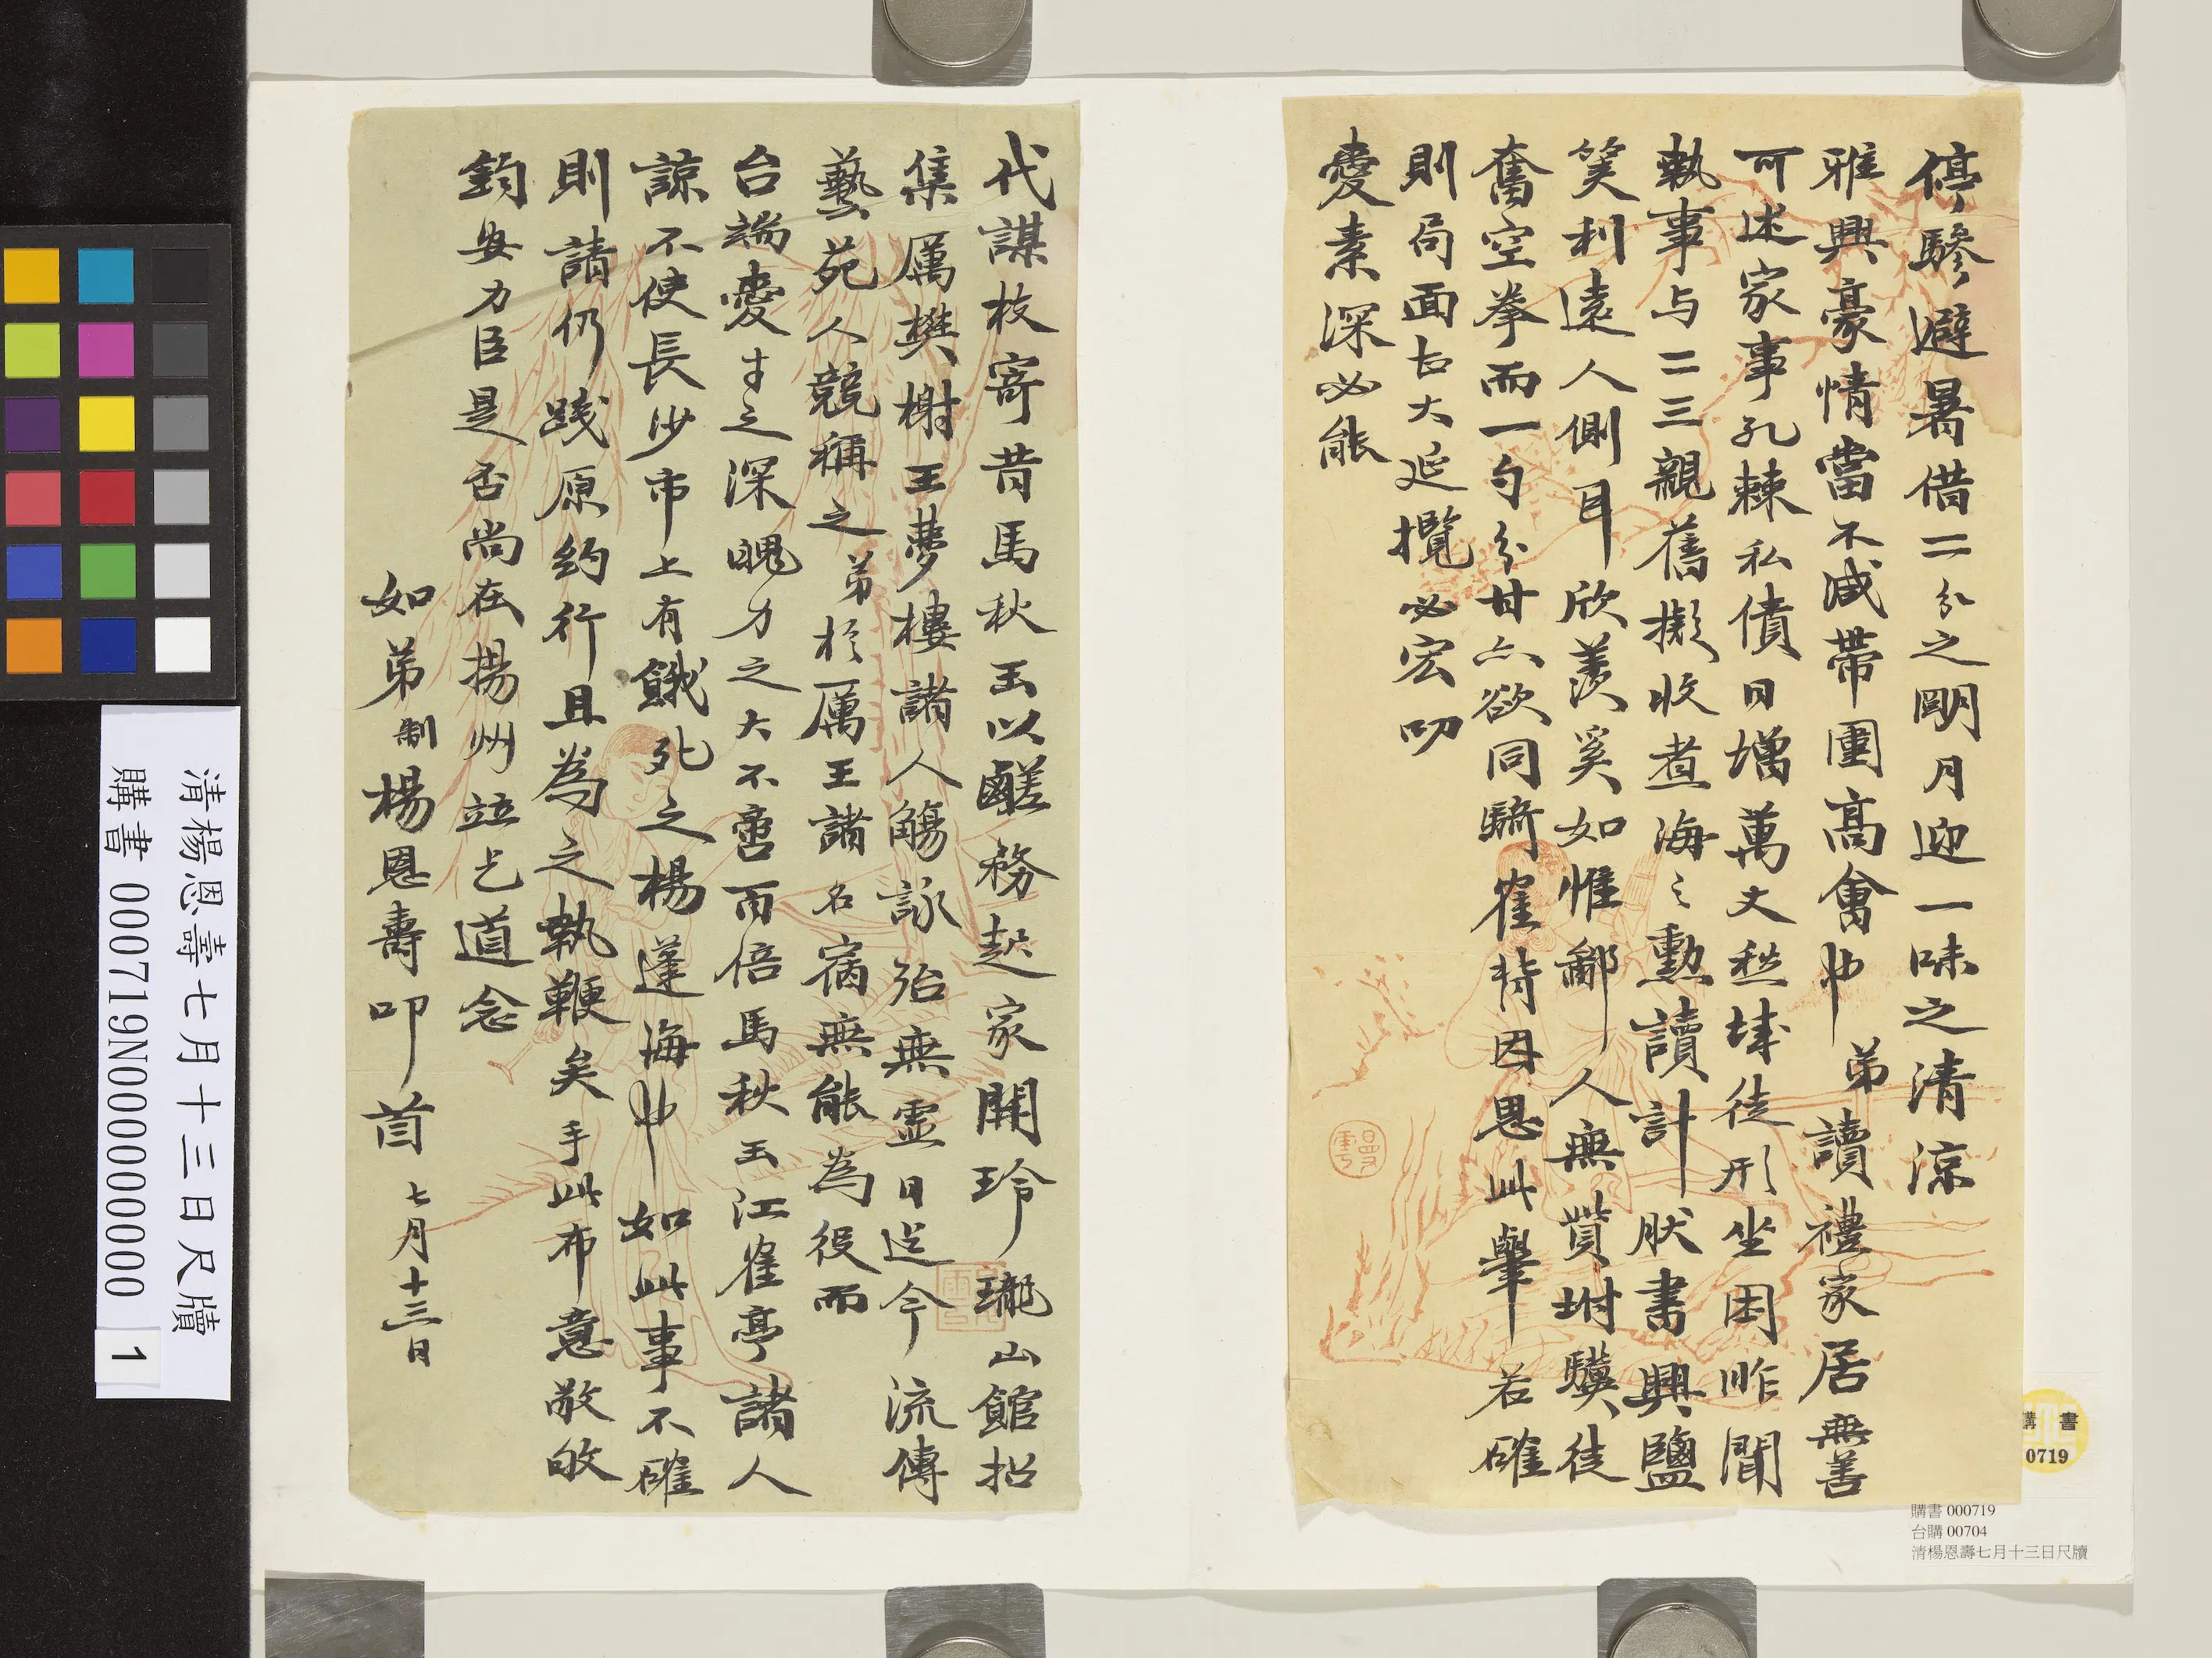 停驂避暑借二分之明月迎一味之清涼
雅興豪情當不減帶圍高會中弟讀禮家居無善
可述家事孔棘私債日增萬文愁城徒形坐困昨聞
執事与二三親舊擬收煮海之勳讀計肰書興鹽
筴利遠人側耳欣羨奚如惟鄙人無貲坿驥徒
奮空拳而一勺分甘亦欲同騎隺背因思此舉若確
則局面古大延攬必宏叨
愛素深必能
代謀枝寄昔馬秋玉以鹺務起家開玲瓏山館招
集厲樊榭王夢樓諸人觴詠殆無虛日迄今流傳
藝苑人競稱之弟於厲王諸名宿無能為役而
台端愛才之深魄力之大不啻而倍馬秋玉江隺亭諸人
諒不使長沙市上有餓死之楊蓬海也如此事不確
則請仍踐原約行且為之執鞭矣手此布意敬敂
鈞安力臣是否尚在揚州竝乞道念
如弟制楊恩壽叩首 七月十三日
清楊恩壽七月十三日尺牘
購書 000719N000000000
1
購書
0719
購書 000719
台購 00704
清楊恩壽七月十三日尺牘